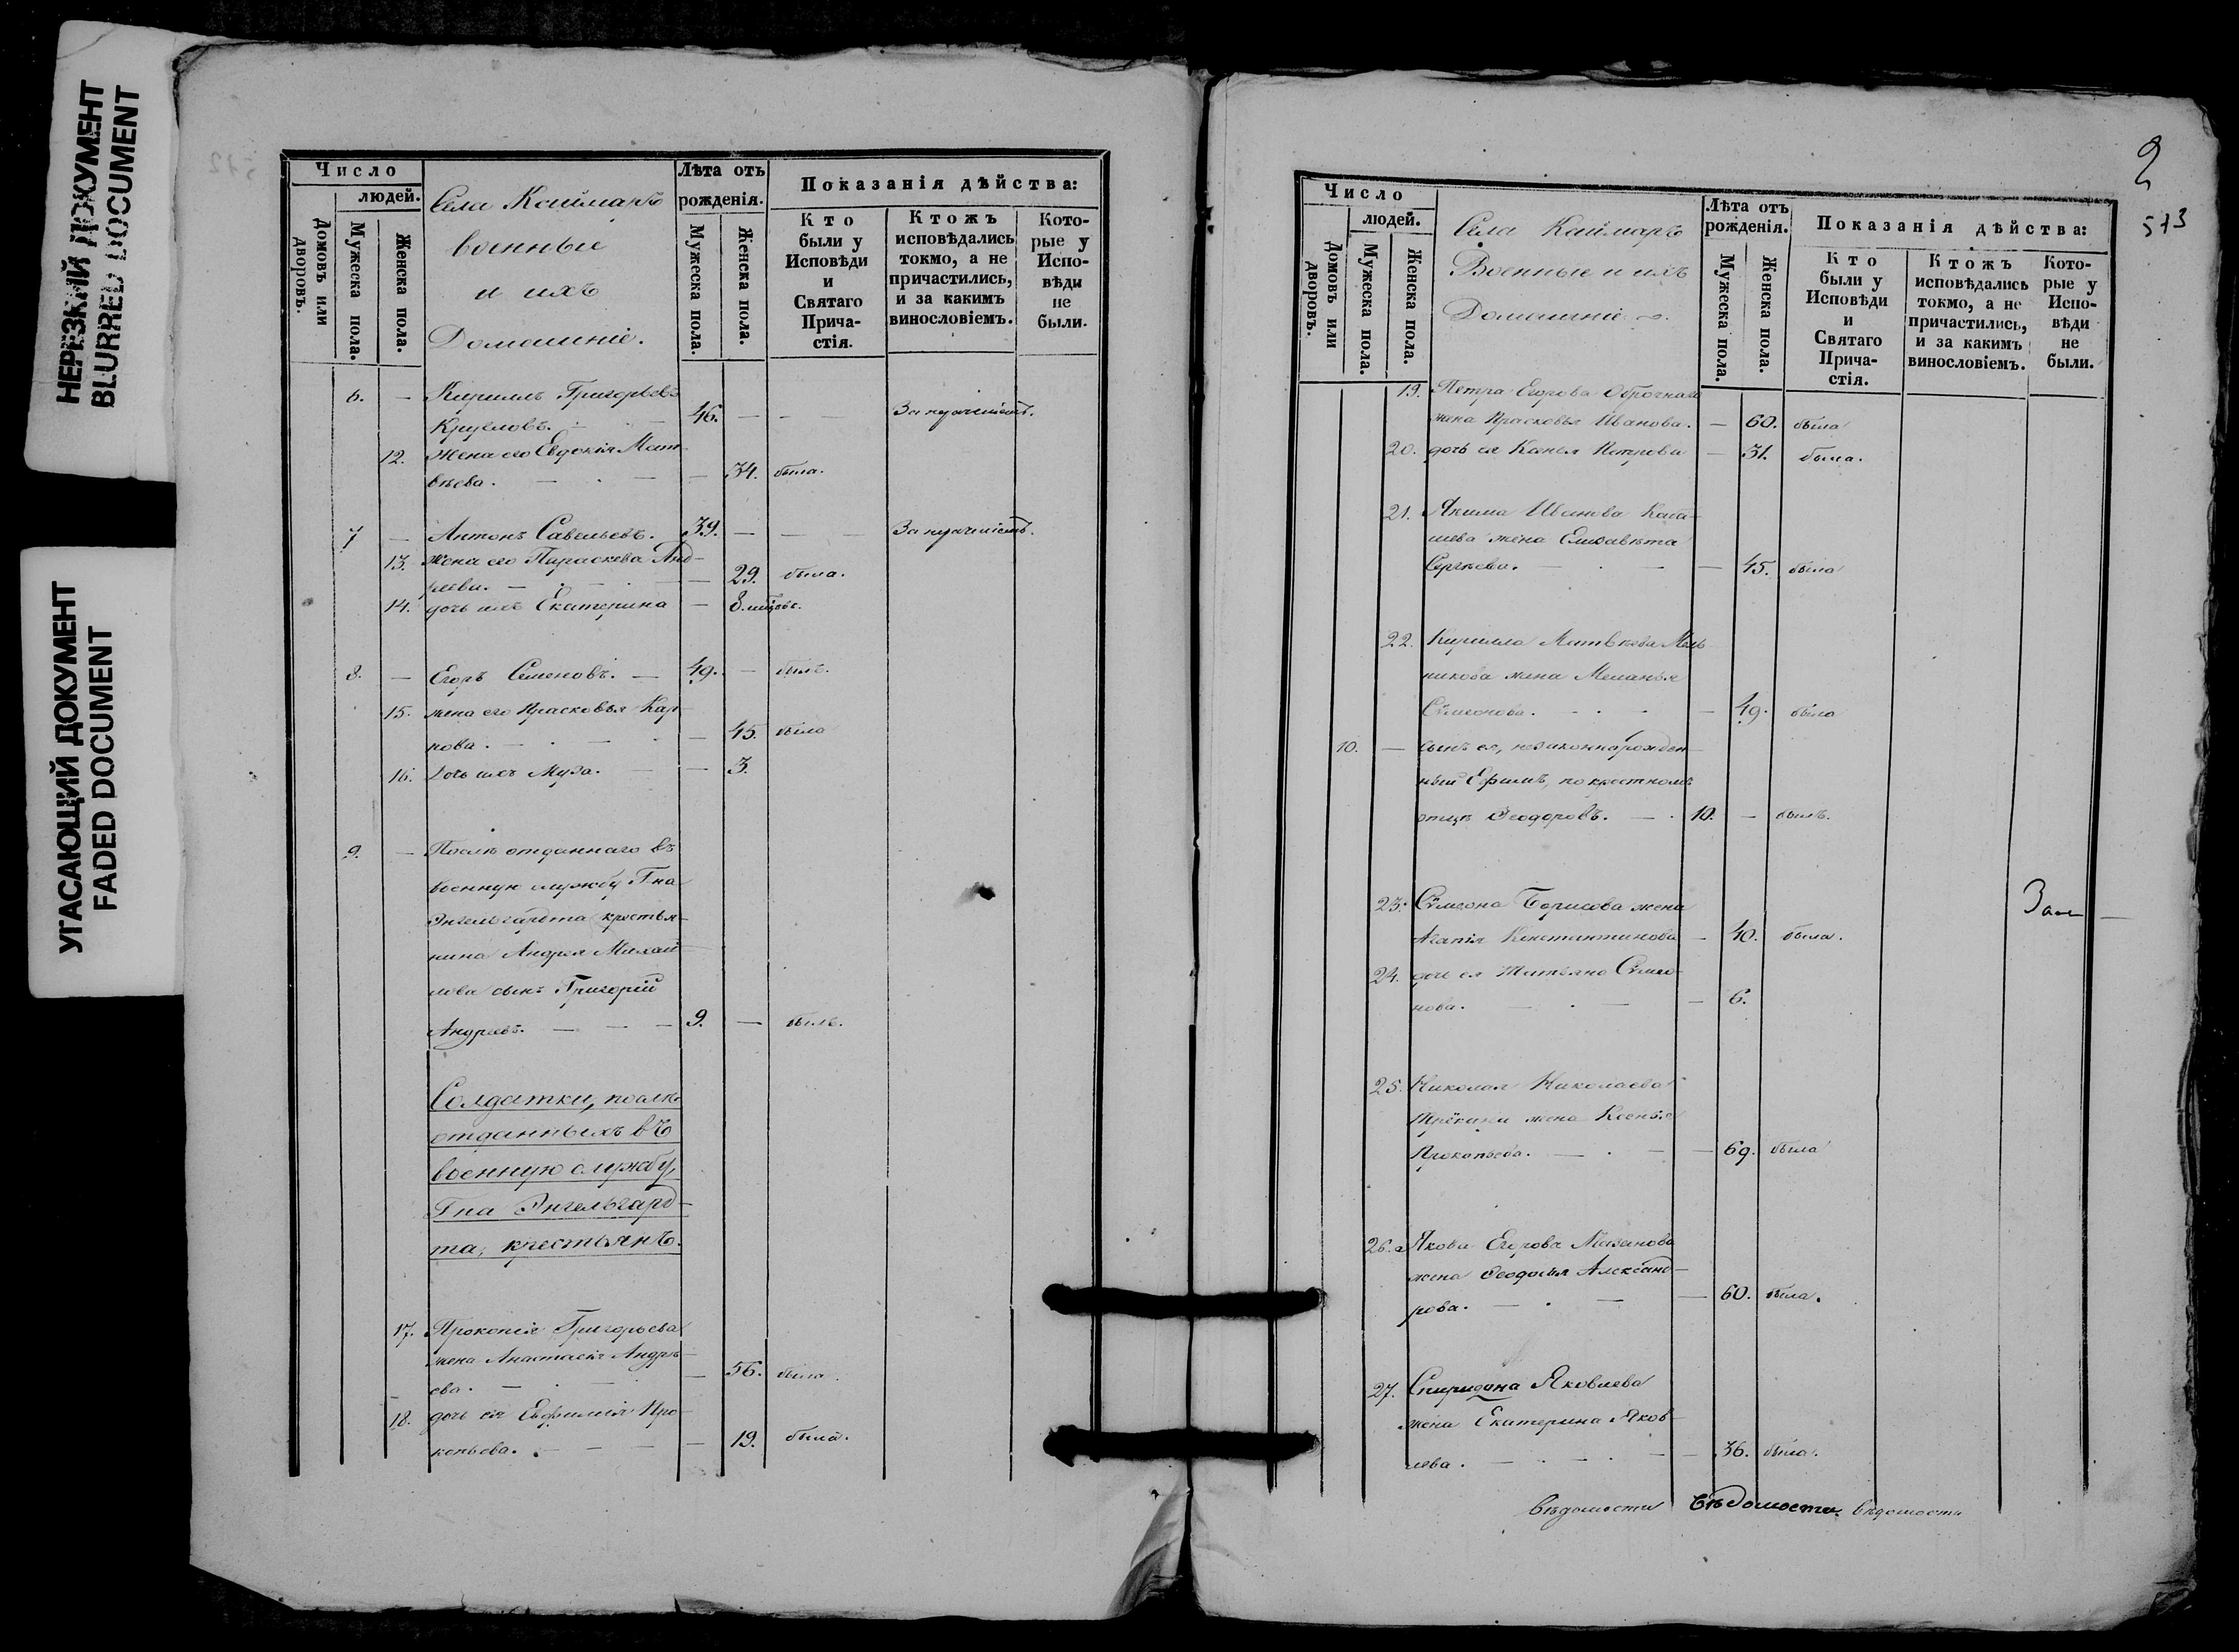 НЕРЕЗКИЙ ДОКУМЕНТ
BLURRED DOCUMENT
УГАСАЮЩИЙ ДОКУМЕНТ
FADED DOCUMENT
Число
людей.
Домовъ или дворовъ.
Мужеска пола.
Женска пола.
Села Каймаръ
военные
и ихъ
Домашніе.
Лѣта отъ
рожденія.
Мужеска пола.
Женска пола.
Показанія дѣйства:
Кто
были у
Исповѣди
и
Святаго
Прича-
стія.
Ктожъ
исповѣдались
токмо, а не
причастились,
и за какимъ
винословіемъ.
Кото-
рые у
Испо-
вѣди
не
были.
6. — Кириллъ Григорьевъ
Кругловъ. — 46. — — — За
12. Жена его Евдокія Мат
вѣева. — . — — 34. была.
7 — Антонъ Савельевъ. 39. — — — За
13. Жена его Параскева Анд-
реева. — . — — 29. была.
14. дочь ихъ Екатерина — 8.
8. — Егоръ Семеновъ. — 49. — былъ.
15. жена его Прасковья Кар
пова. — . — — 45. была
16. Дочь ихъ Муза. — — 3.
9. — Послѣ отданнаго въ
военную службу Гна
Энгельгардта крестья-
нина Андрея Михай
лова сынъ Григорій
Андреевъ. — — — 9. — былъ.
Солдатки, послѣ
отданныхъ въ
военную службу,
Гна Энгельгард-
та, крестьянъ.
17. Прокопія Григорьева
жена Анастасія Андрѣ-
ева. — . — — 56. была.
18. дочь ея Евфимія Про
копьева. — — — — 19. была.
2
573
Число
людей.
Домовъ или дворовъ.
Мужеска пола.
Женска пола.
Села Каймаръ
Военные и ихъ
Домашніе
Лѣта отъ
рожденія.
Мужеска пола.
Женска пола.
Показанія дѣйства:
Кто
были у
Исповѣди
и
Святаго
Прича-
стія.
Ктожъ
исповѣдались
токмо, а не
причастились,
и за какимъ
винословіемъ.
Кото-
рые у
Испо-
вѣди
не
были.
19. Петра Егорова Оброчнаго
жена Прасковья Иванова. — 60. была
20. дочь ея Петрова — 31. была.
21. Якима Иванова
шева жена Елизавета
Сергѣева. — . — — 45. была
22. Кирилла Матвѣева Мель
никова жена Меланья
Сѵмеонова. — . — — 49. была
10. — сынъ ея, незаконнорожден-
ный Ефимъ, по крестномъ
отцѣ Ѳеодоровъ. — . 10. — былъ.
23. Сѵмеона Борисова жена
Агапія Константинова — 40. была.
24. дочь ея Татьяна Сѵмео-
нова. — . — — 6.
25. Николая Николаева
жена Ксенья
Прокопьева. — . — — 69. была
26. Якова Егорова
жена Ѳеодосья Александ-
рова. — . — — 60. была.
27. Спиридона Яковлева
жена Екатерина Яков-
лева. — . — . — 36. была.
вѣдомости вѣдомости вѣдомости